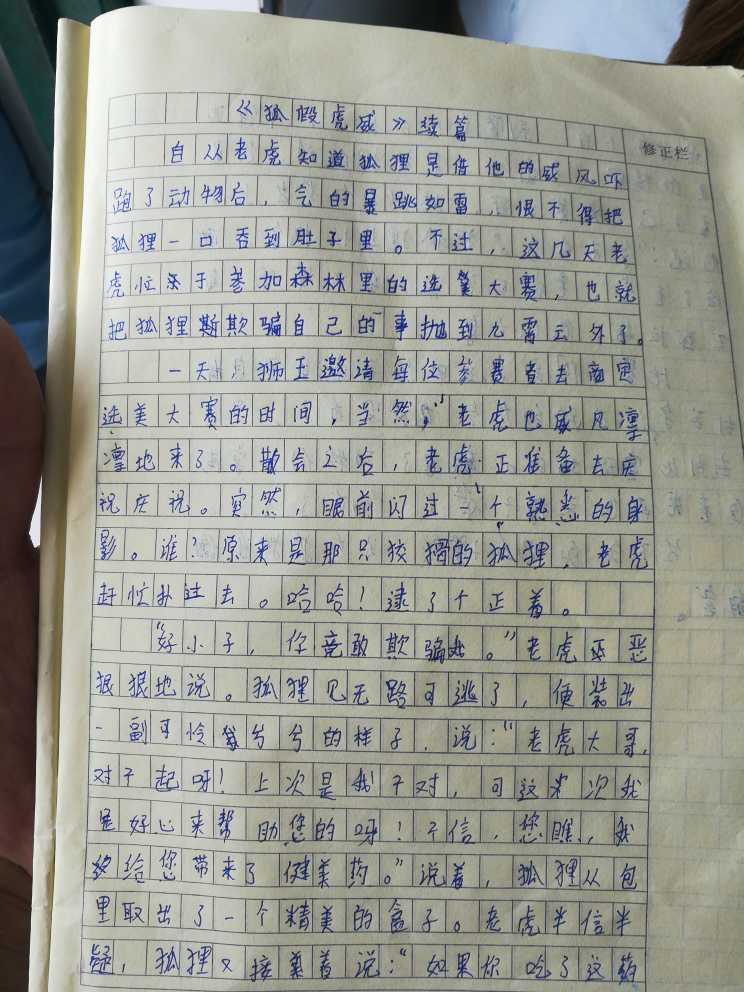 《狐假虎威》续篇
修正栏
自从老虎知道狐狸是借他的威风吓
跑了动物后，气的暴跳如雷，恨不得把
狐狸一口吞到肚子里。不过，这几天老
虎忙于参加森林里的选美大赛，也就
把狐狸欺骗自己的事抛到九霄云外了。
一天，狮王邀请每位参赛者去商定
选美大赛的时间，当然，老虎也威风凛
凛地来了。散会之后，老虎正准备去庆
祝庆祝。突然，眼前闪过一个熟悉的身
影。谁？原来是那只狡猾的狐狸，老虎
赶忙扑过去。哈哈！逮了个正着。
“好小子，你竟敢欺骗我。”老虎恶
狠狠地说。狐狸见无路可逃了，便装出
一副可怜兮兮的样子，说：“老虎大哥，
对不起呀！上次是我不对，可这次我
是好心来帮助您的呀！不信，您瞧，我
给您带来了健美药。”说着，狐狸从包
里取出了一个精美的盒子。老虎半信半
疑，狐狸又接着说：“如果你吃了这药